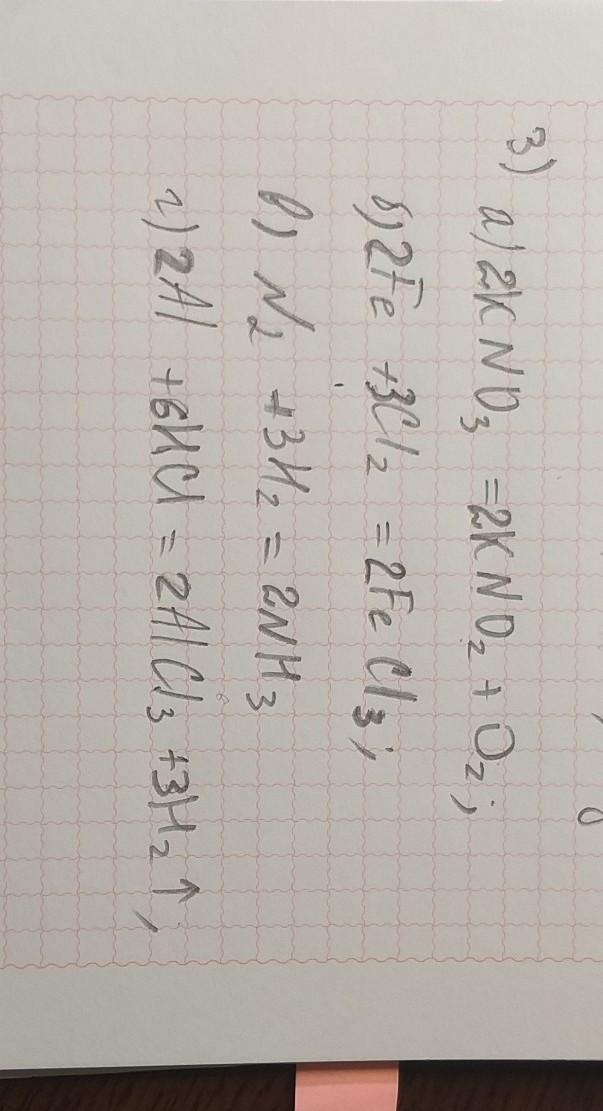 3) а) 2KNO₃ = 2KNO₂ + O₂;
б) 2Fe + 3Cl₂ = 2FeCl₃;
в) N₂ + 3H₂ = 2NH₃
г) 2Al + 6HCl = 2AlCl₃ + 3H₂↑,